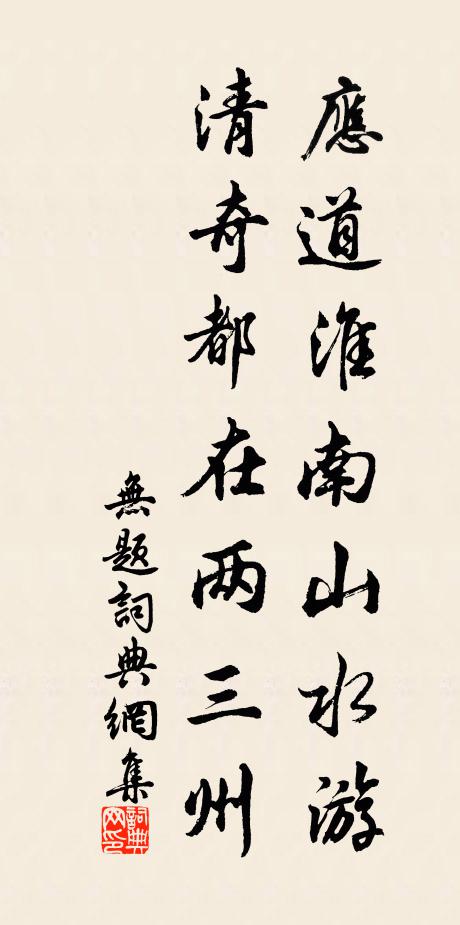 應道淮南山水游
清奇都在两三州
無題詞典網集
詞典网印